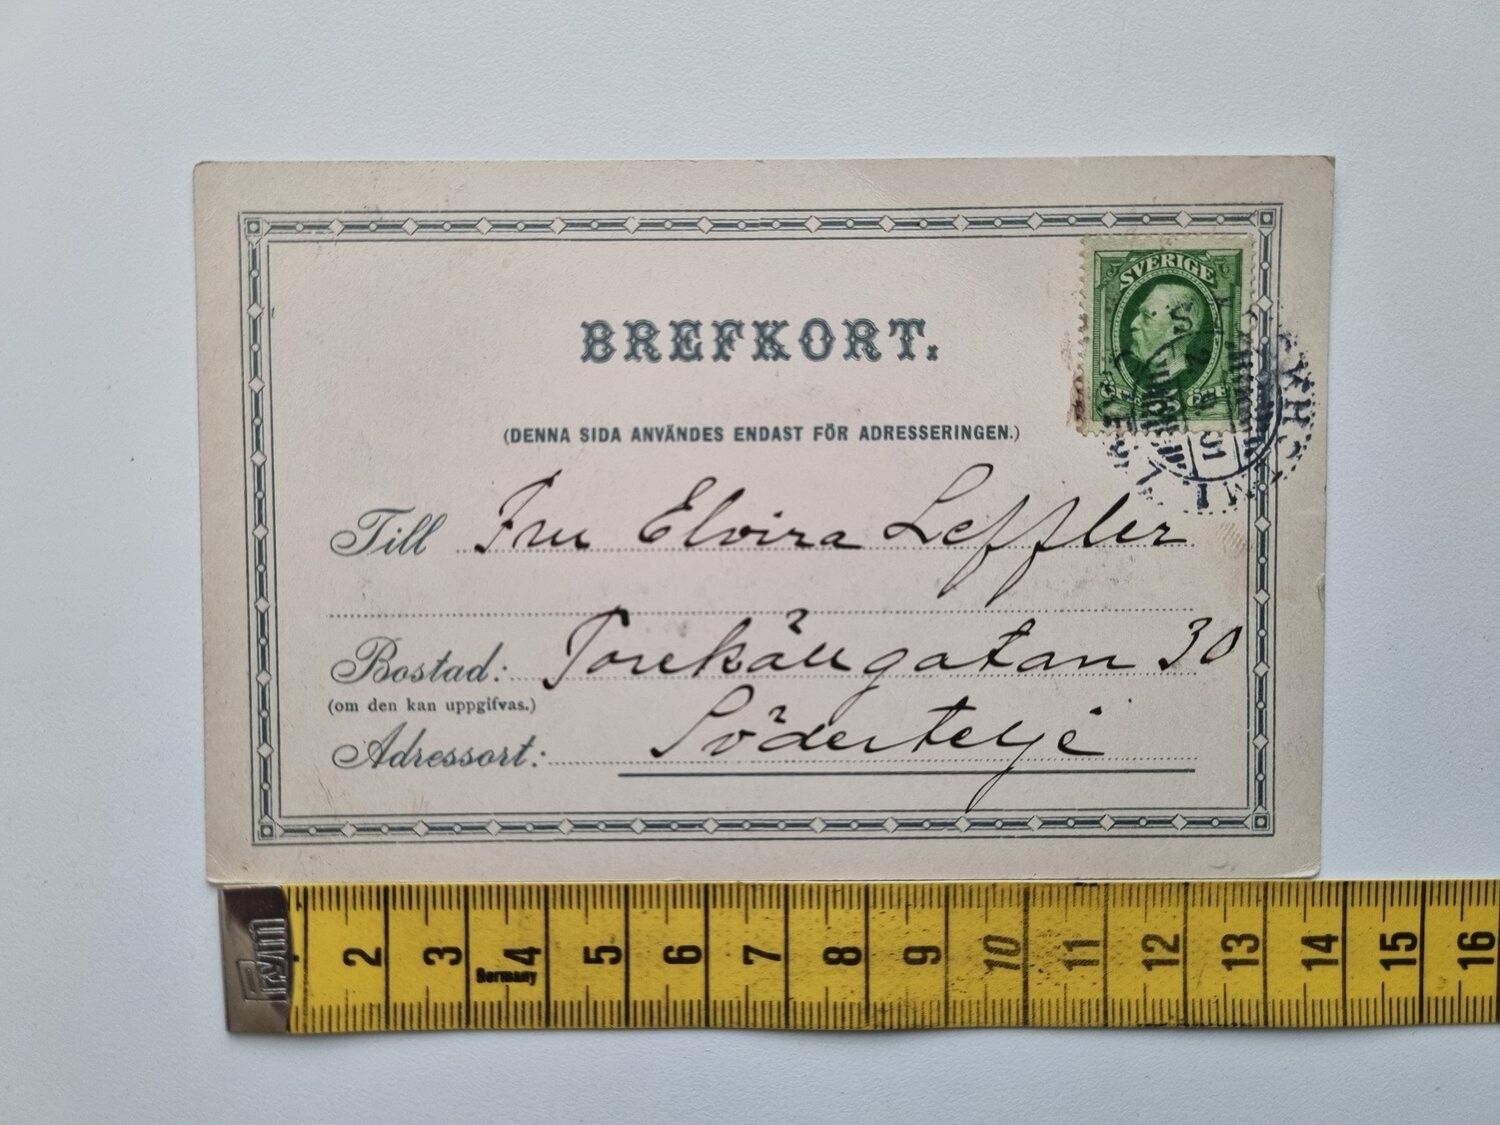 SVERIGE
BREFKORT.
(DENNA SIDA ANVÄNDES ENDAST FÖR ADRESSERINGEN.)
Till Fru Elvira Leffler
Bostad: Torekällgatan 30
(om den kan uppgifvas.)
Adressort: Södertelje
Prym
Germany
2 3 4 5 6 7 8 9 10 11 12 13 14 15 16